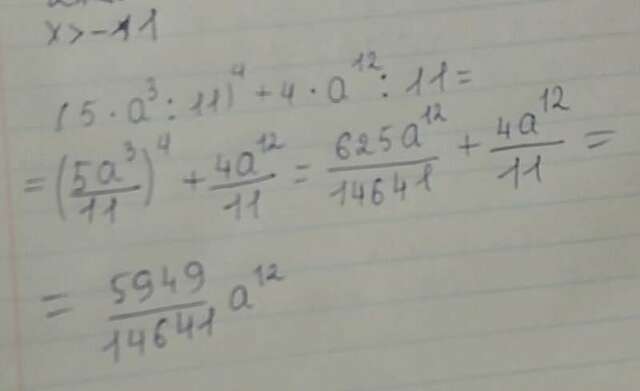 x > -11
(5 · a³ : 11)⁴ + 4 · a¹² : 11 =
= (5a³/11)⁴ + 4a¹²/11 = 625a¹²/14641 + 4a¹²/11 =
= 5949/14641 a¹²